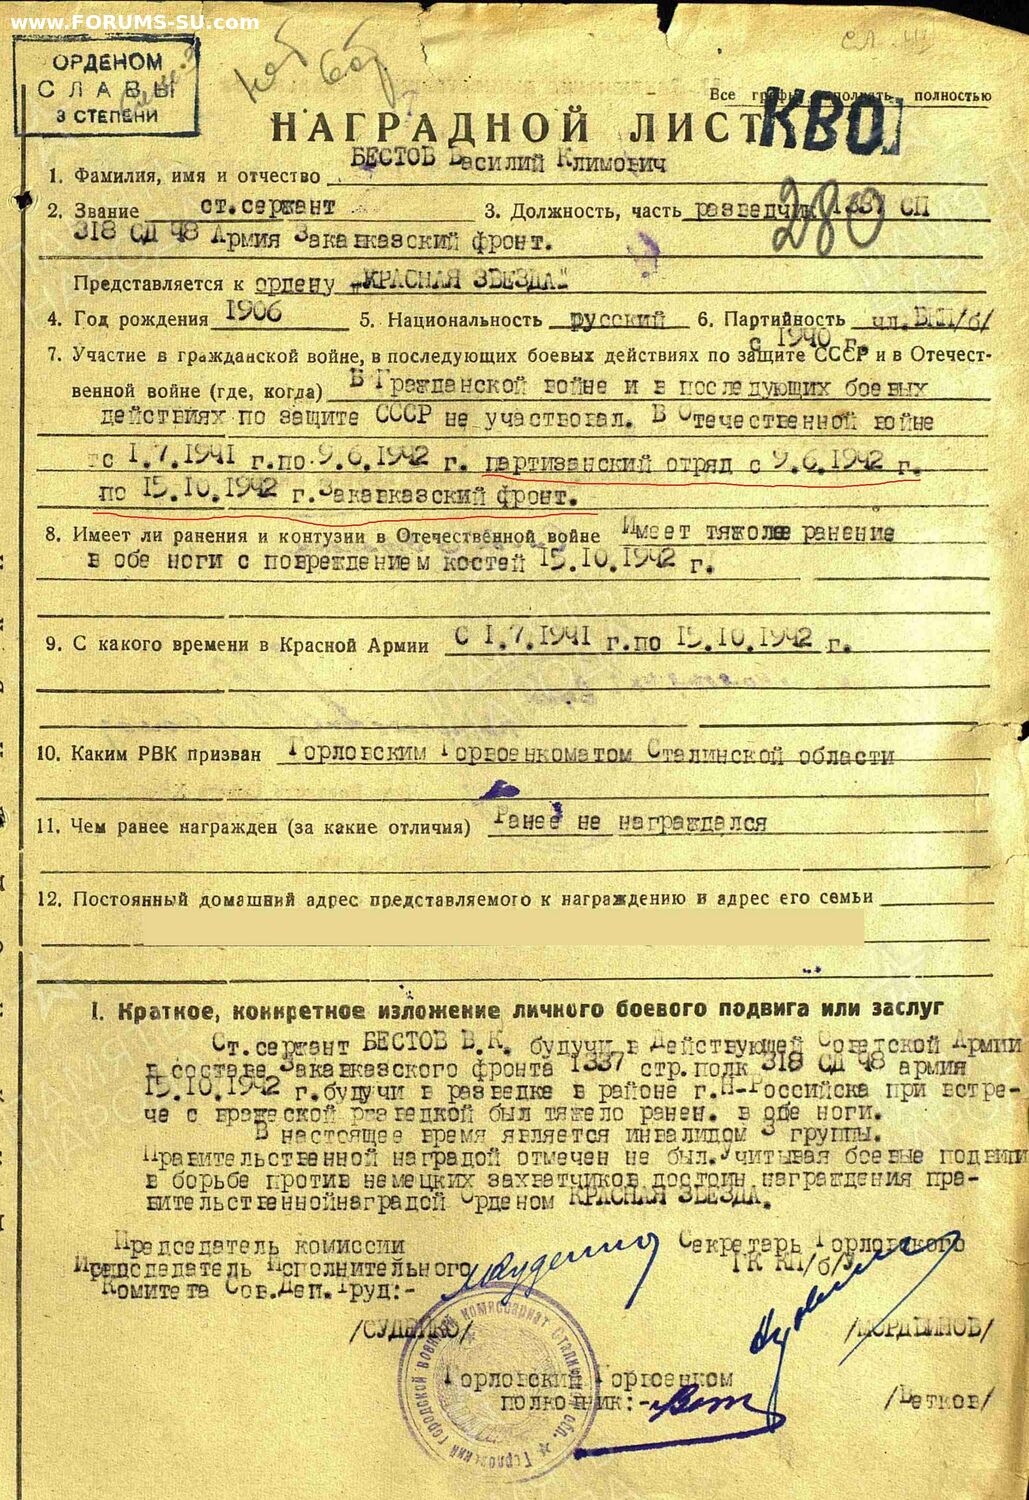 www.FORUMS-SU.com
ОРДЕНОМ
СЛАВЫ
3 СТЕПЕНИ
Все графы заполнять полностью
НАГРАДНОЙ ЛИСТ
КВО
280
1. Фамилия, имя и отчество БЕСТОВ Василий Климович
2. Звание ст.сержант 3. Должность, часть разведчик 1337 СП
318 СД 48 Армия Закавказский фронт.
Представляется к ордену „КРАСНАЯ ЗВЕЗДА"
4. Год рождения 1906 5. Национальность русский 6. Партийность чл.ВКП/б/
с 1940 г.
7. Участие в гражданской войне, в последующих боевых действиях по защите СССР и в Отечест-
венной войне (где, когда) В Гражданской войне и в последующих боевых
действиях по защите СССР не участвовал. В Отечественной войне
с 1.7.1941 г.по 9.6.1942 г. партизанский отряд с 9.6.1942 г.
по 15.10.1942 г. Закавказский фронт.
8. Имеет ли ранения и контузии в Отечественной войне Имеет тяжолое ранение
в обе ноги с повреждением костей 15.10.1942 г.
9. С какого времени в Красной Армии С 1.7.1941 г.по 15.10.1942 г.
10. Каким РВК призван Горловским Горвоенкоматом Сталинской области
11. Чем ранее награжден (за какие отличия) Ранее не награждался
12. Постоянный домашний адрес представляемого к награждению и адрес его семьи
I. Краткое, конкретное изложение личного боевого подвига или заслуг
Ст.сержант БЕСТОВ В.К. будучи в Действующей Советской Армии
в составе Закавказского фронта 1337 стр.полк 318 СД 48 армия
15.10.1942 г.будучи в разведке в районе г.Н-Российска при встре-
че с вражеской разведкой был тяжело ранен. в обе ноги.
В настоящее время является инвалидом 3 группы.
Правительственной наградой отмечен не был.Учитывая боевые подвиги
в борьбе против немецких захватчиков достоин награждения пра-
вительственнойнаградой Орденом КРАСНАЯ ЗВЕЗДА.
Председатель комиссии Секретарь Горловского
Председатель Исполнительного ГК КП/б/У
Комитета Сов.Деп.Труд:-
/СУДЕНКО/ /МОРДВИНОВ/
Горловский Горвоенком
полковник:- /Ветков/